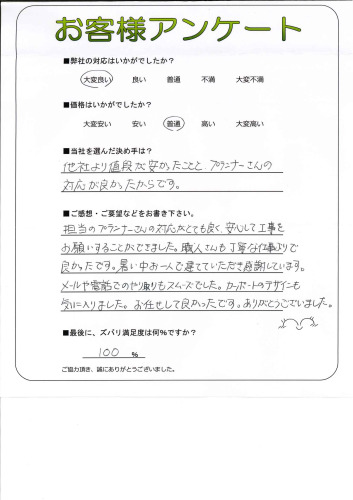 お客様アンケート
■弊社の対応はいかがでしたか？
大変良い 良い 普通 不満 大変不満
■価格はいかがでしたか？
大変安い 安い 普通 高い 大変高い
■当社を選んだ決め手は？
他社より値段が安かったことと、プランナーさんの
対応が良かったからです。
■ご感想・ご要望などをお書き下さい。
担当のプランナーさんの対応がとても良く、安心して工事を
お願いすることができました。職人さんも丁寧な仕事ぶりで
良かったです。暑い中お一人で建てていただき感謝しています。
メールや電話でのやり取りもスムーズでした。カーポートのデザインも
気に入りました。お任せして良かったです。ありがとうございました。
■最後に、ズバリ満足度は何％ですか？
100 ％
ご協力頂き、誠にありがとうございました。